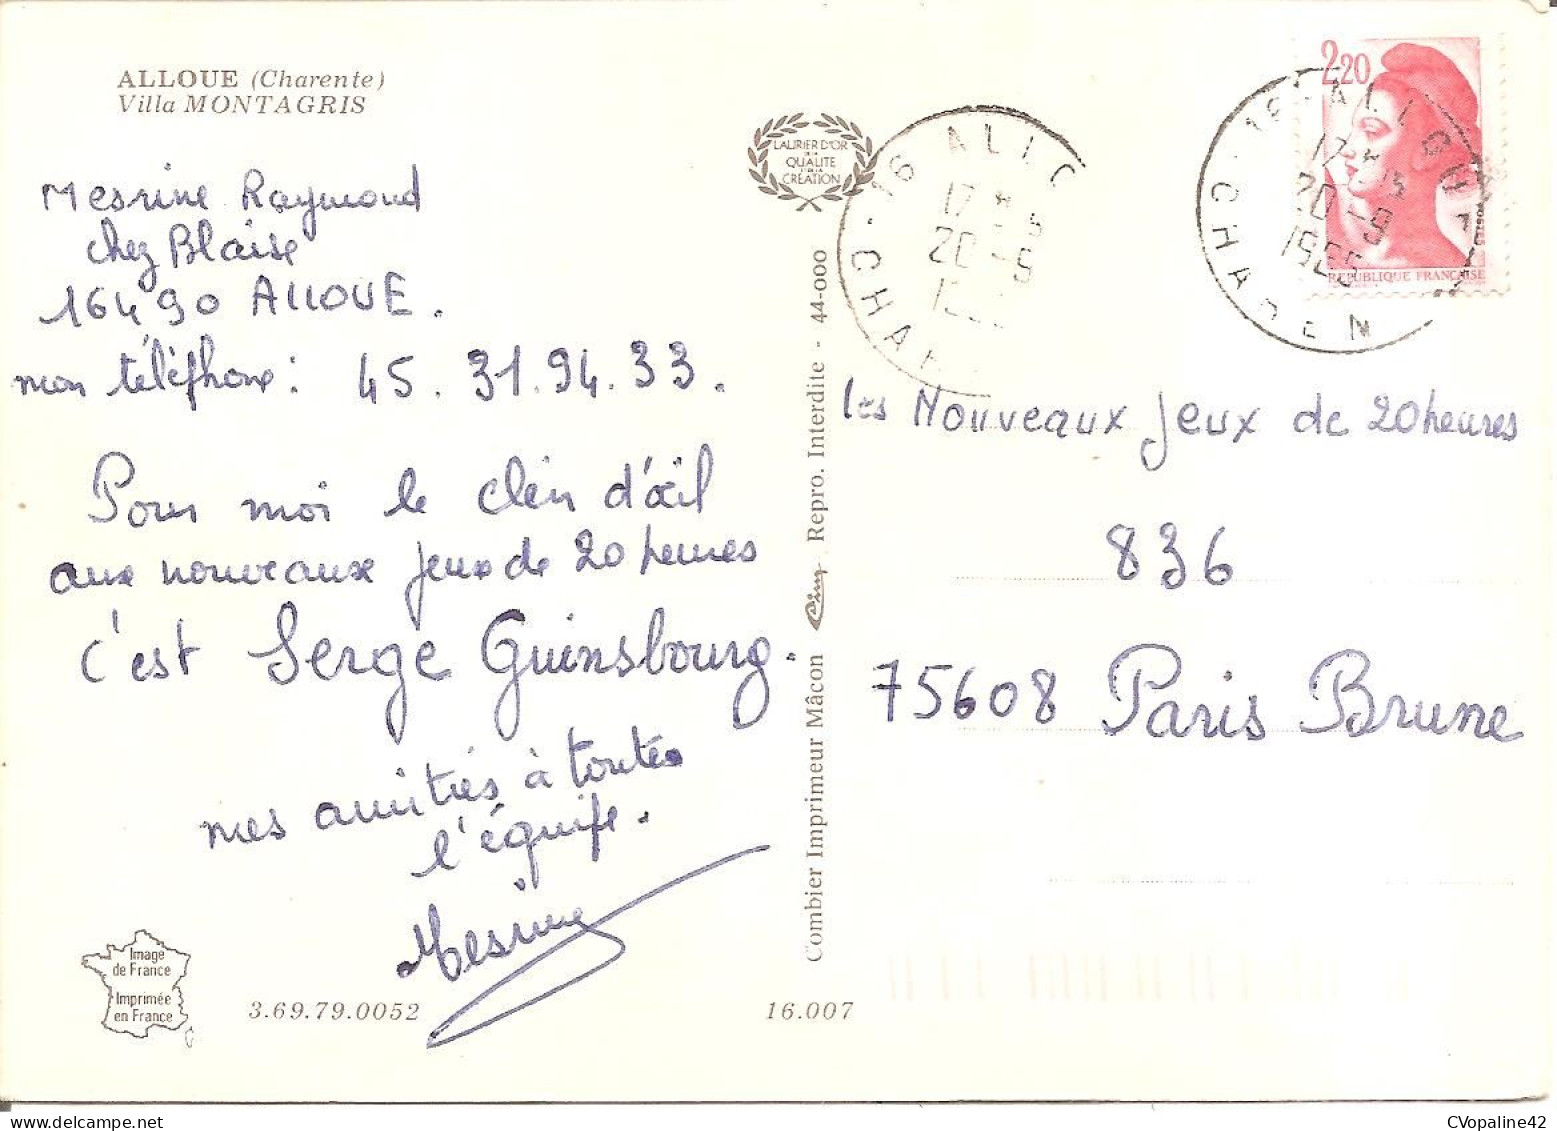 ALLOUE (Charente)
Villa MONTAGRIS
Mesrine Raymond
chez Blaise
16490 ALLOUE.
mon téléphone : 45.31.94.33.
Pour moi le clin d'œil
aux nouveaux jeux de 20 heures
c'est Serge Guinsbourg.
mes amitiés à toutes
l'équipe.
Mesrine
Image
de France
Imprimée
en France
3.69.79.0052
16.007
LAURIER D'OR
DE LA
QUALITE
ET DE LA
CREATION
Combier Imprimeur Mâcon Cim Repro. Interdite - 44-000
16 ALLO
17
20 -9
CHAR
2,20
REPUBLIQUE FRANÇAISE
16 ALLOUE
17
20 -9
CHAREN
les Nouveaux Jeux de 20heures
836
75608 Paris Brune
CVopaline42